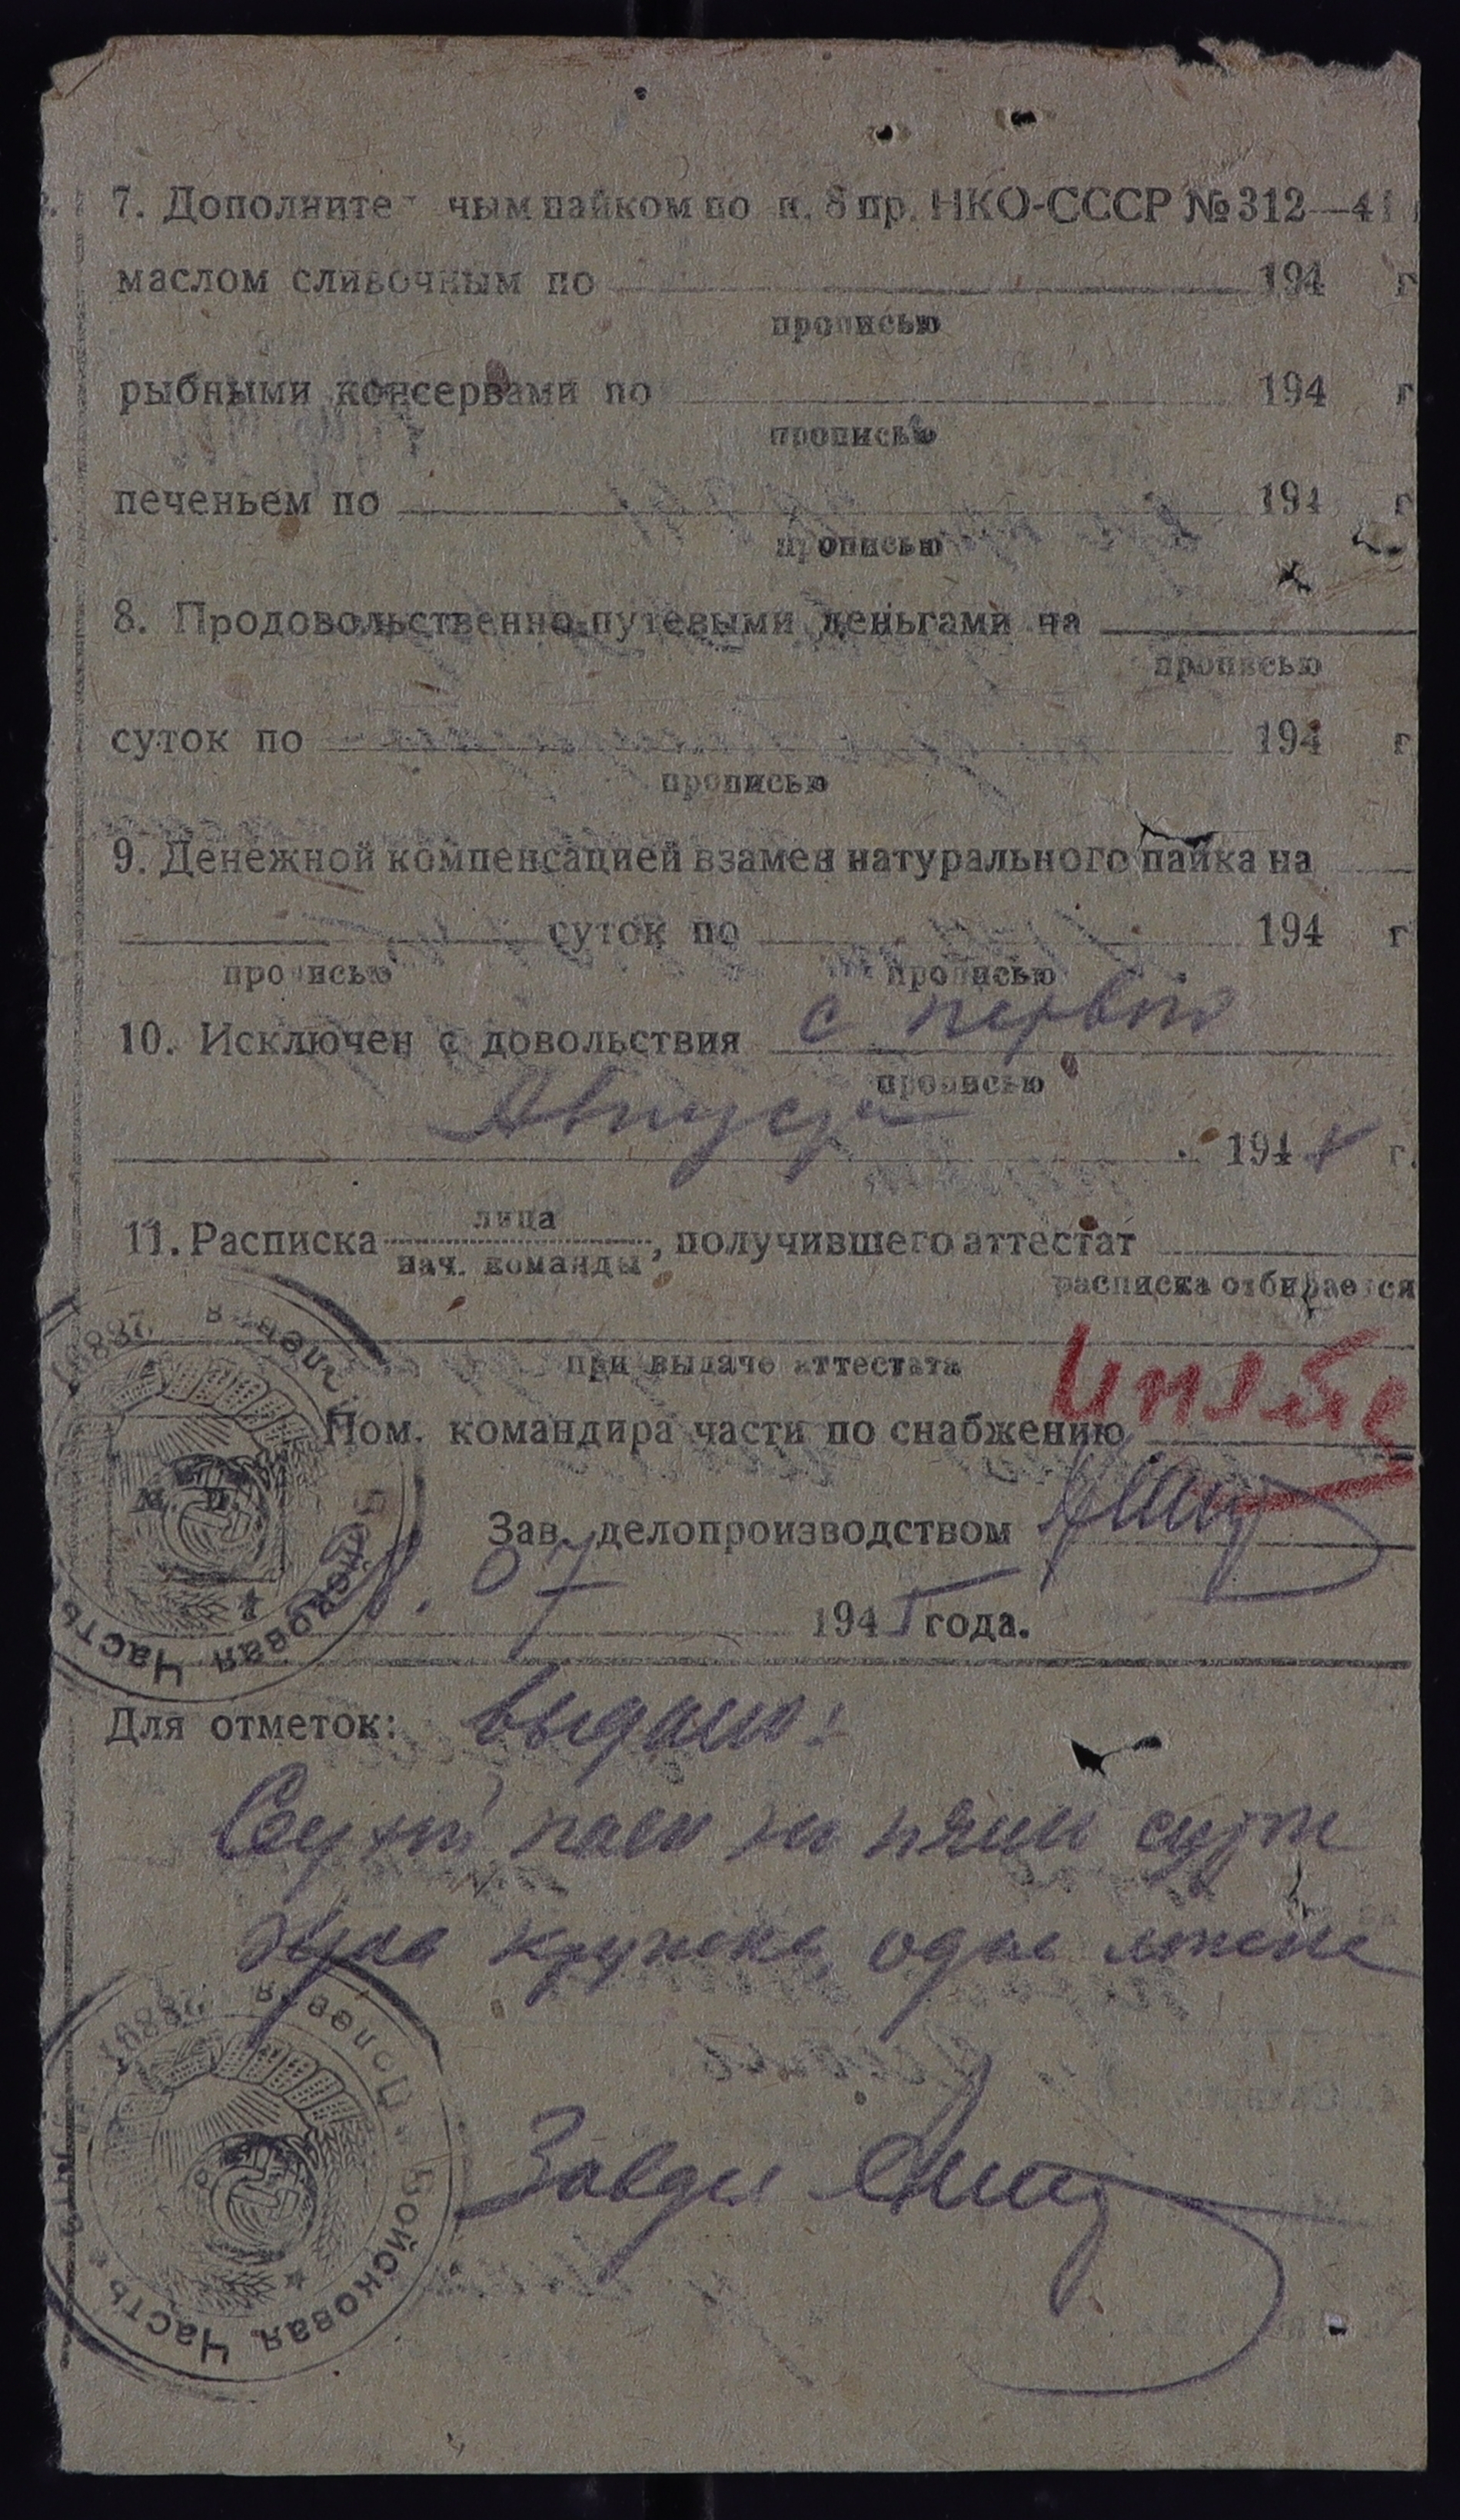 7. Дополнительным пайком по п. 8 пр. НКО-СССР № 312—41
маслом сливочным по 194 г
прописью
рыбными консервами по 194 г
прописью
печеньем по 194 г
прописью
8. Продовольственно-путевыми деньгами на
прописью
суток по 194 г
прописью
9. Денежной компенсацией взамен натурального пайка на
суток по 194 г
прописью прописью
10. Исключен с довольствия с первого
прописью
Августа 194 г.
лица
11. Расписка , получившего аттестат
нач. команды
расписка отбирается
при выдаче аттестата
Пом. командира части по снабжению
м. п.
Зав. делопроизводством
07 1945 года.
Полевая Войсковая Часть
Для отметок: выдано:
Сухой паек на сутки
кружка одна
Полевая Войсковая Часть
Завдел